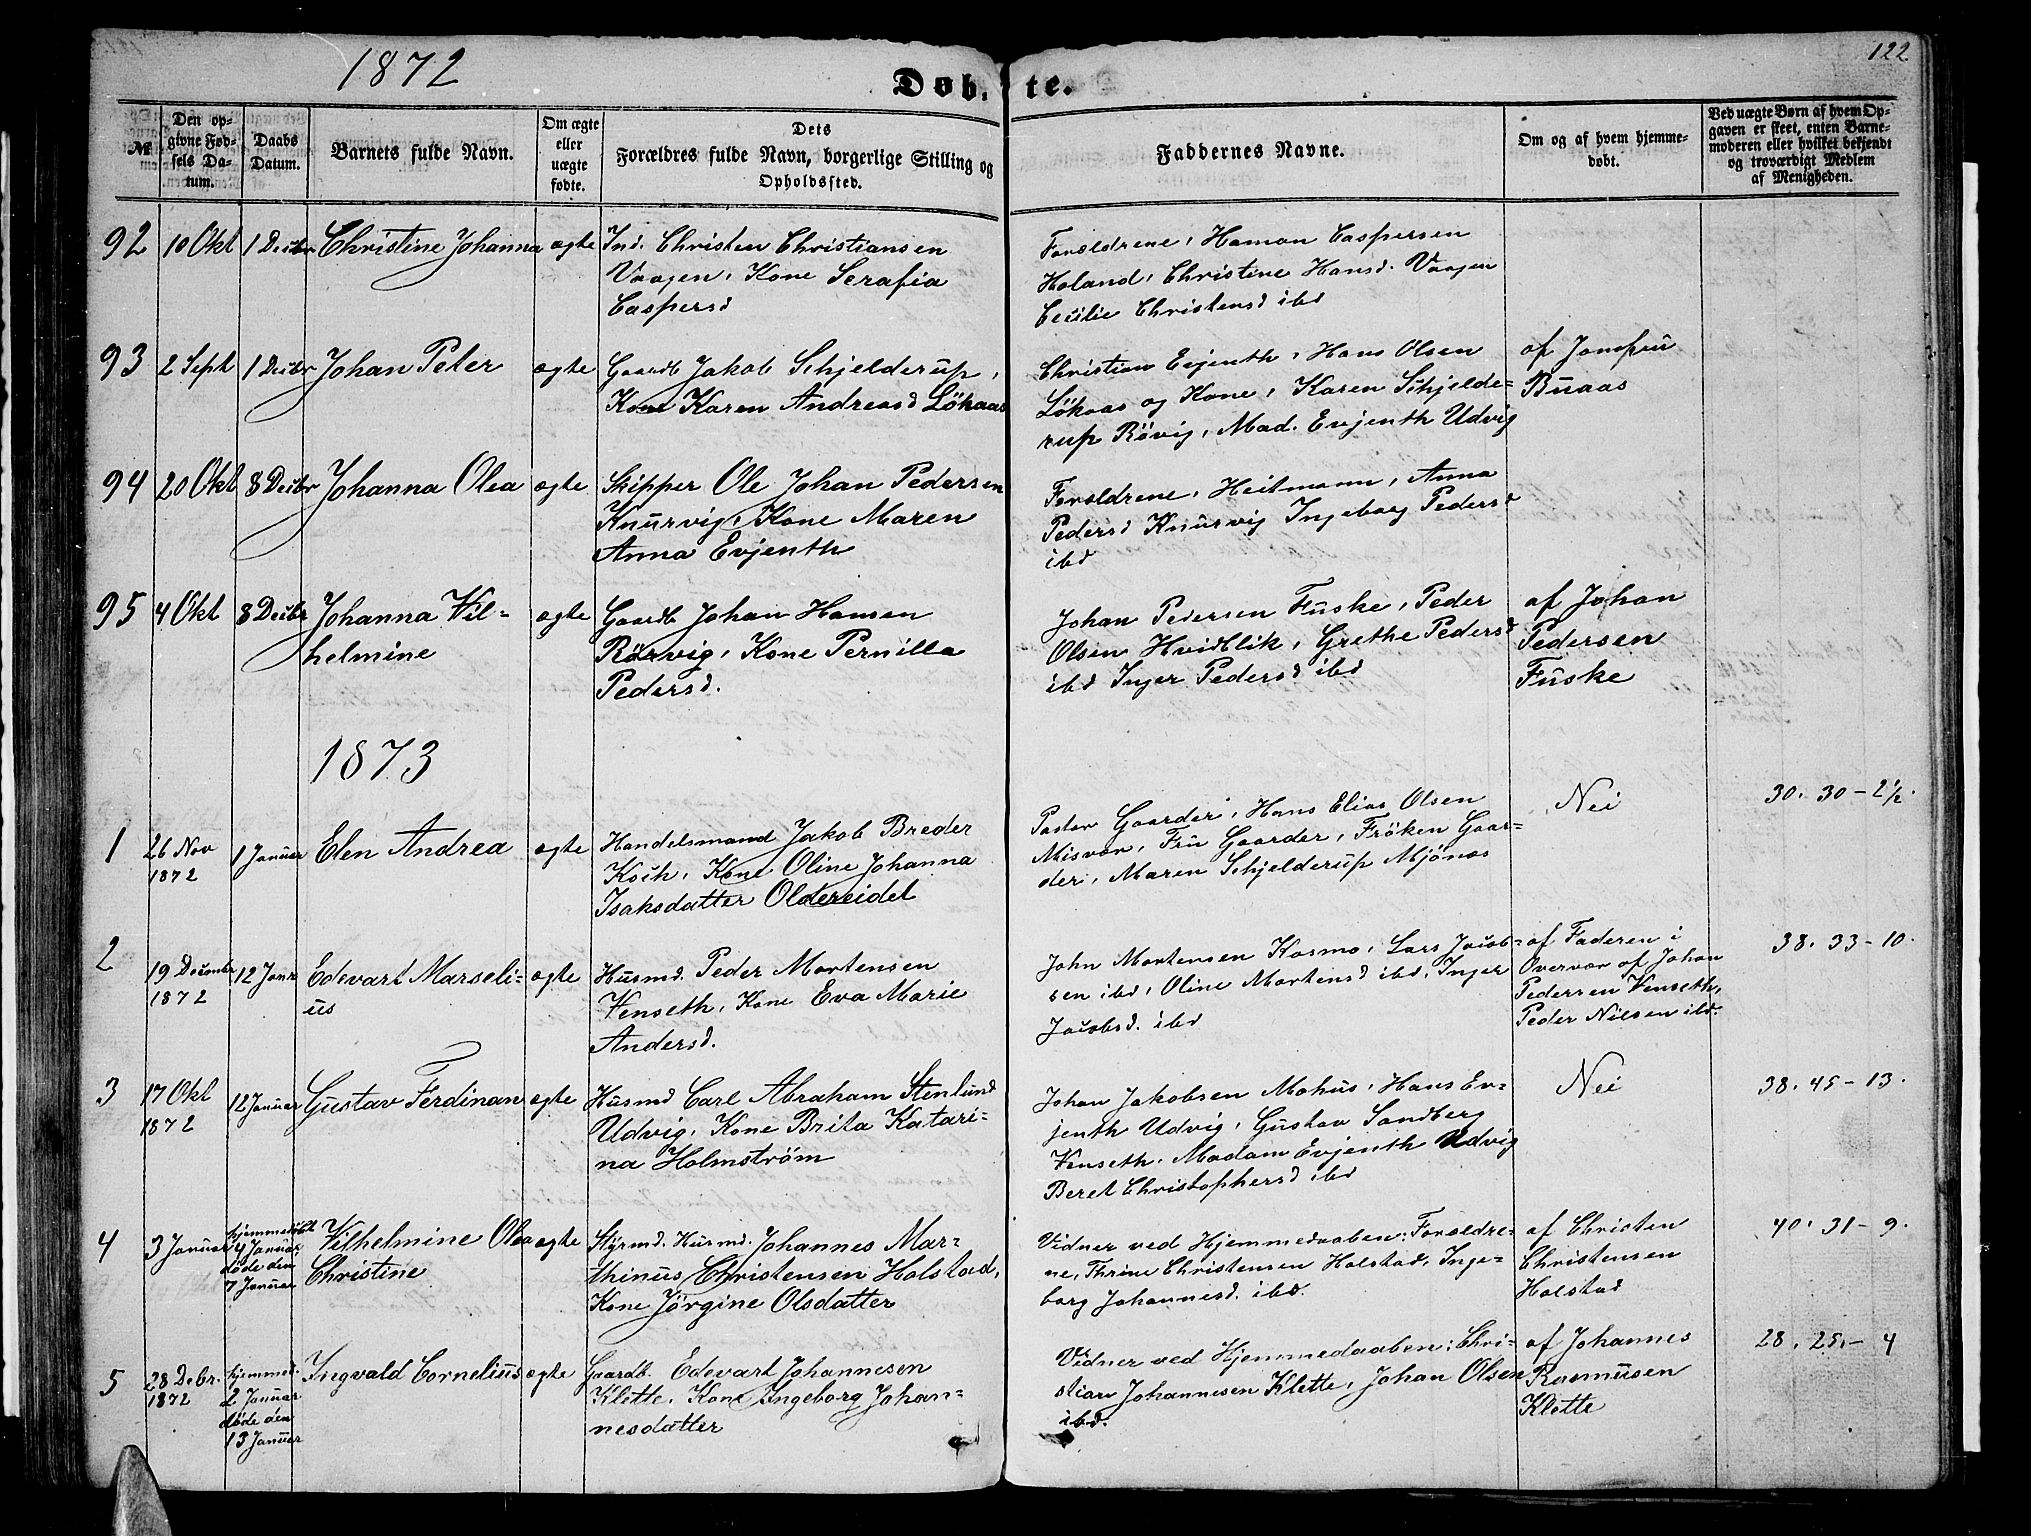 1872
Døb. te.
122
№
Den op-
givne Fød-
sels Da-
tum.
Daabs
Datum.
Barnets fulde Navn.
Om ægte
eller
uægte
fødte.
Dets
Forældres fulde Navn, borgerlige Stilling og
Opholdssted.
Faddernes Navne.
Om og af hvem hjemme-
døbt.
Ved uægte Børn af hvem Op-
gaven er skeet, enten Barne-
moderen eller hvilket bekjendt
og troværdigt Medlem
af Menigheden.
92 10 Okt 1 Decbr Christine Johanna ægte
Ind. Christen Christiansen
Vaagen, Kone Serafia
Caspersd
Forældrene, Haman Caspersen
Høland, Christine Hansd. Vaagen
Cecilie Christensd ibd
93 2 Sept 1 Decbr Johan Peter ægte
Gaardb Jakob Schjelderup,
Kone Karen Andreasd Løkaas
Christian Evjenth, Hans Olsen
Løkaas og Kone, Karen Schjelde-
rup Røvig, Mad. Evjenth Udvig
af Jomfru
Buaas
94 20 Okt 8 Decbr Johanna Olea ægte
Skipper Ole Johan Pedersen
Knurvig, Kone Maren
Anna Evjenth
Forældrene, Heitmann, Anna
Pedersd Knurvig Ingeborg Pedersd
ibd
95 4 Okt 8 Decbr Johanna Vil-
helmine
ægte
Gaardb Johan Hansen
Rørvig, Kone Pernilla
Pedersd.
Johan Pedersen Fuske, Peder
Olsen Hvidblik, Grethe Pedersd
ibd Inger Pedersd ibd
af Johan
Pedersen
Fuske
1873
1 26 Nov
1872
1 Januar Elen Andrea ægte
Handelsmand Jakob Breder
Koch, Kone Oline Johanna
Isaksdatter Oldereidet
Pastor Gaarder, Hans Elias Olsen
Misvær, Fru Gaarder, Frøken Gaar-
der, Maren Schjelderup Mjønæs
Nei
30. 30 - 2½.
2 19 Decembr
1872
12 Janr Edevart Marseli-
us
ægte
Husmd. Peder Mortensen
Venseth, Kone Eva Marie
Andersd.
John Mortensen Kosmo, Lars Jacob-
sen ibd, Oline Mortensd ibd, Inger
Jacobsd. ibd
af Faderen i
Overvær af Johan
Pedersen Venseth,
Peder Nilsen ibd.
38. 33 - 10.
3 17 Okt
1872
12 Januar Gustav Ferdinan ægte
Husmd Carl Abraham Stenlund
Udvig, Kone Brita Katari-
na Holmstrøm
Johan Jakobsen Mohus, Hans Ev-
jenth Udvig, Gustav Sandberg
Venseth, Madam Evjenth Udvig
Beret Christophersd ibd
Nei
38. 45 - 13.
4 3 Januar
hjemmedøbt
4 Januar
døde den
7 Januar
Vilhelmine Olea
Christine
ægte
Styrmd. Husmd. Johannes Mar-
thinus Christensen Holstad,
Kone Jørgine Olsdatter
Vidner ved Hjemmedaaben: Forældre-
ne, Thrine Christensen Holstad, Inge-
borg Johannesd. ibd.
af Christen
Christensen
Holstad
40. 31 - 9.
5 28 Debr.
1872
hjemmed.
2 Januar
døde den
13 Januar
Ingvald Cornelius ægte
Gaardb. Edevart Johannesen
Klette, Kone Ingeborg Johan-
nesdatter
Vidner ved Hjemmedaaben: Chri-
stian Johannesen Klette, Johan Olsen
ibd.
af Johannes
Rasmusen
Klette
28. 25. - 4